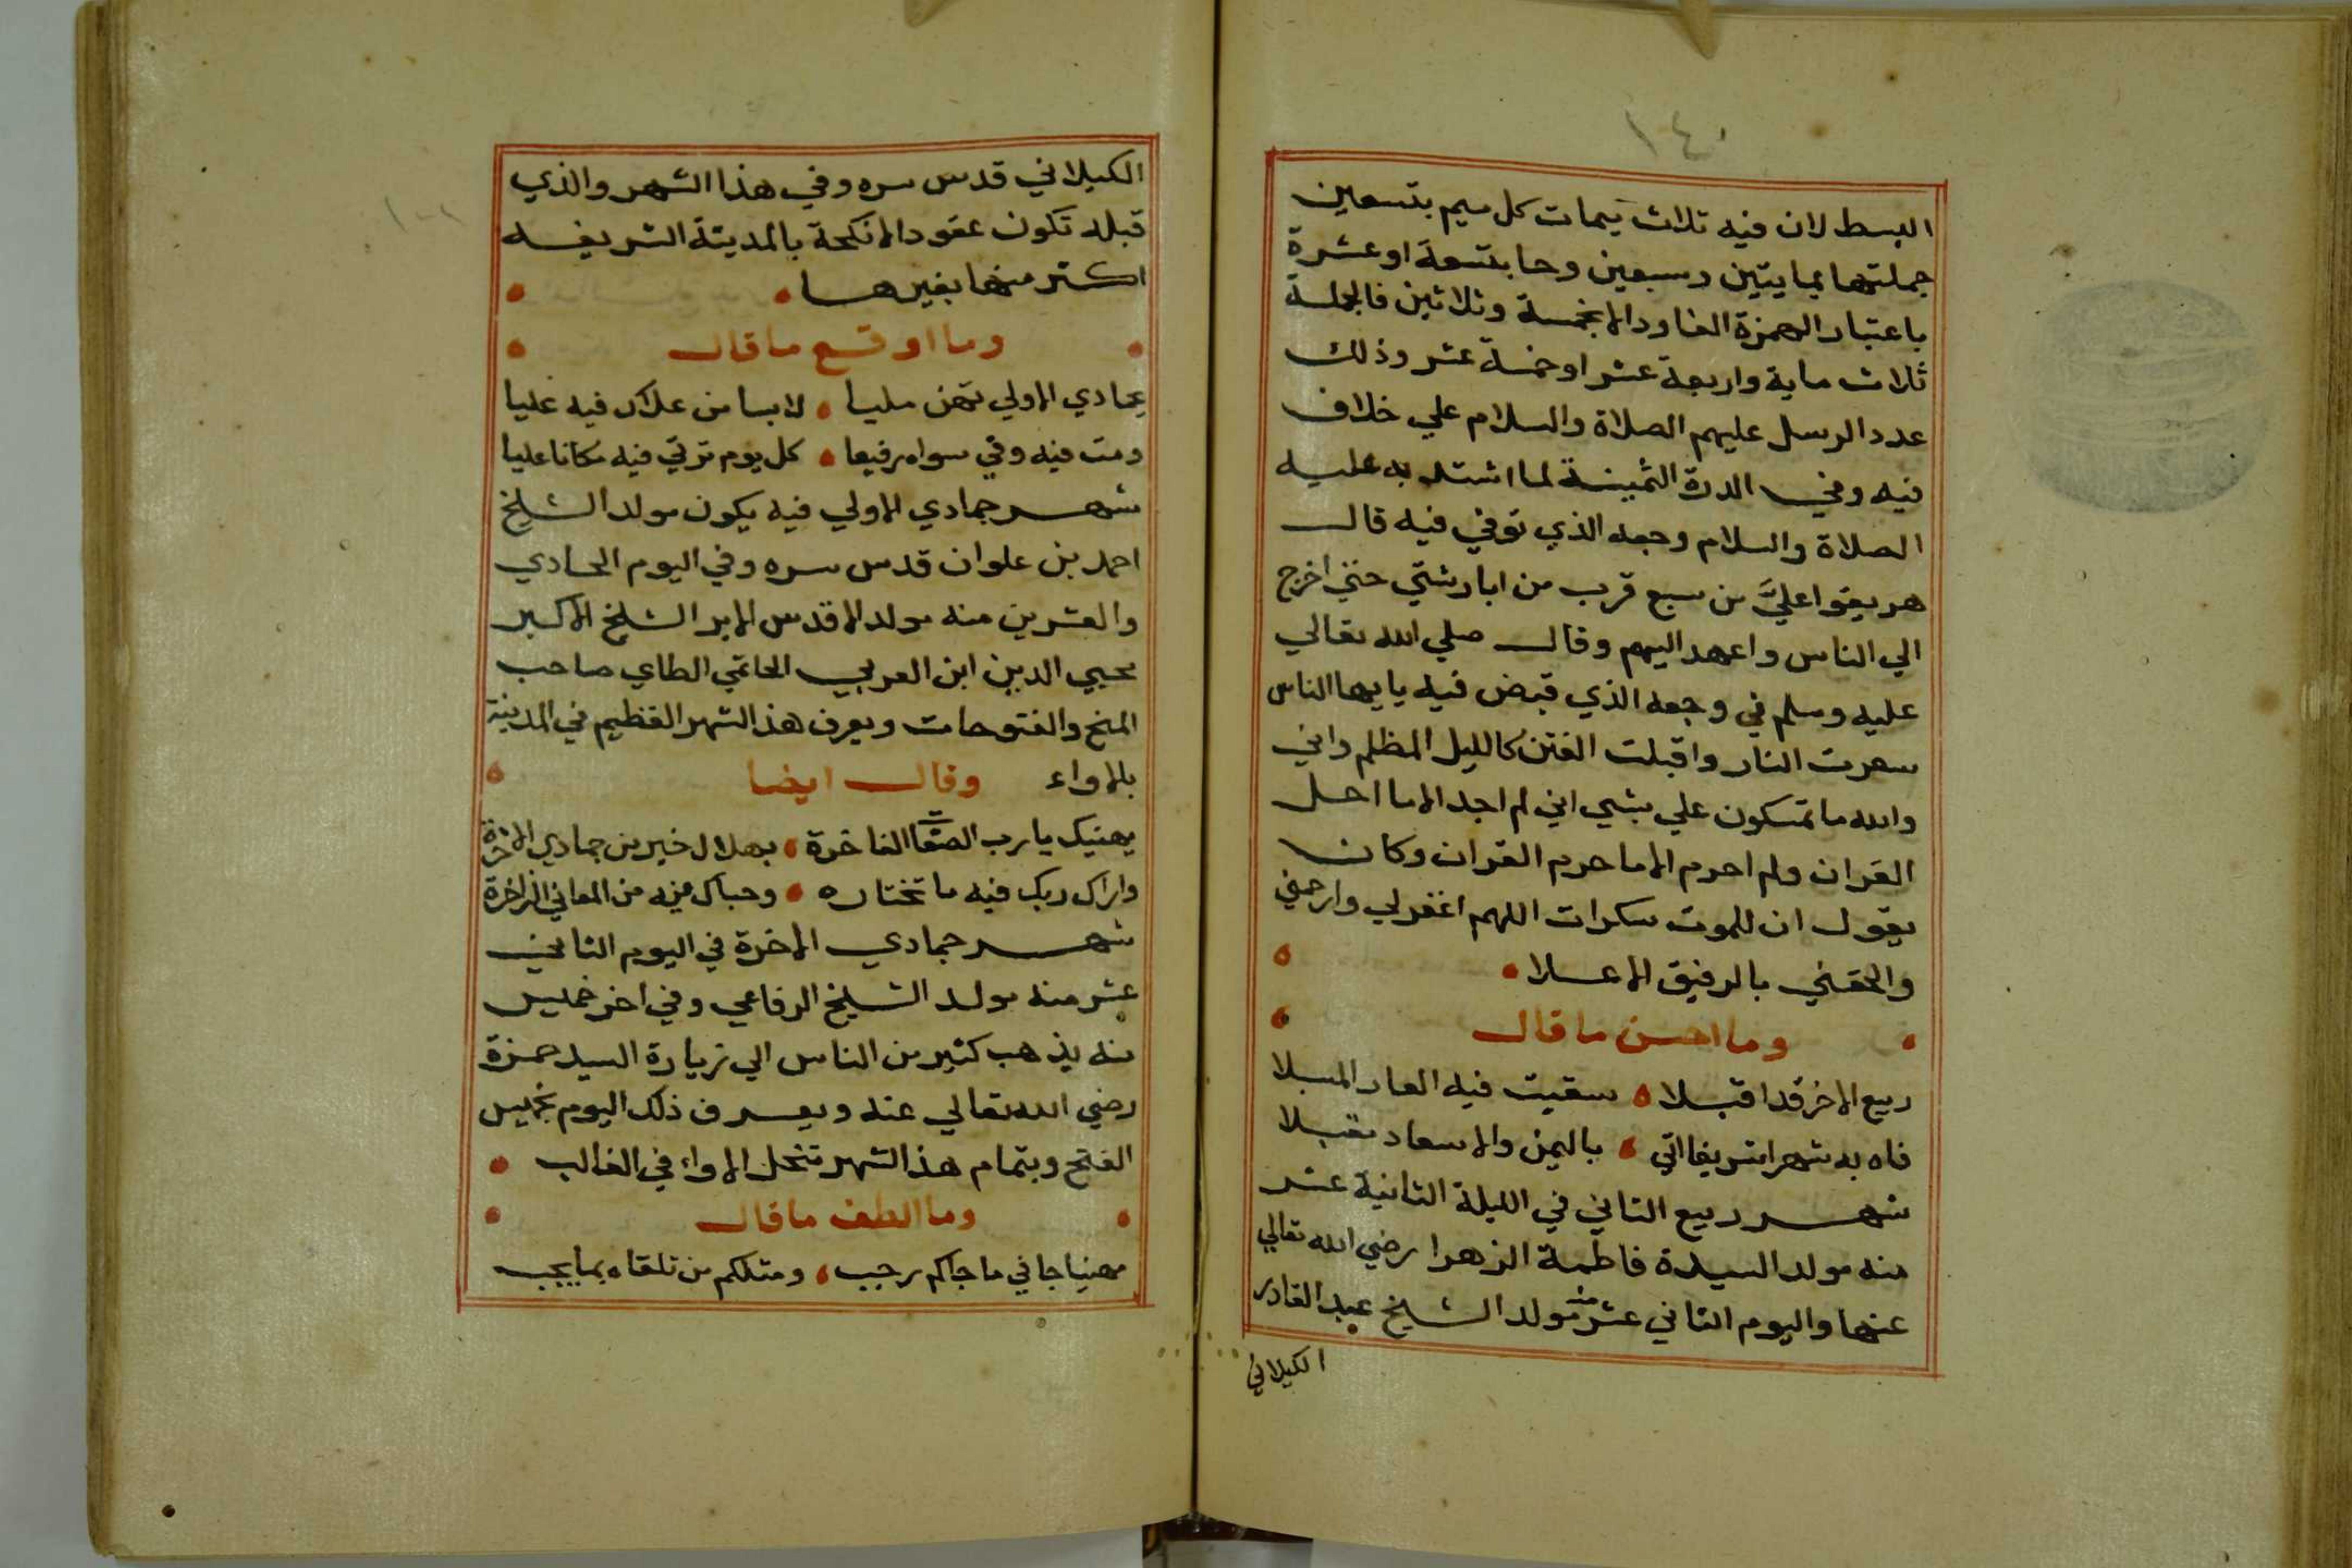 ١٤٠
البسط لان فيه ثلاث يمات كل ميم بتسعين
جملتها بمايتين وسبعين وحا بتسعة او عشرة
باعتبار الهمزة الفا ودال بخمسة وثلاثين فالجملة
ثلاث ماية واربعة عشر او خمسة عشر وذلك
عدد الرسل عليهم الصلاة والسلام علي خلاف
فيه وفي الدرة الثمينة لما اشتد به عليه
الصلاة والسلام وجعه الذي توفي فيه قال
هريقوا عليَّ من سبع قرب من ابار شتي حتي اخرج
الي الناس واعهد اليهم وقال صلي الله تعالي
عليه وسلم في وجعه الذي قبض فيه يايها الناس
سعرت النار واقبلت الفتن كالليل المظلم واني
والله ما تمسكون علي بشي اني لم اجد الا ما احل
القران ولم احرم الا ما حرم القران وكان
يقول ان للموت سكرات اللهم اغفر لي وارحمني
والحقني بالرفيق الاعلا
وما احسن ما قال
ربيع الاخر قد اقبلا سقيت فيه العار المسبلا
فاه به شهرا شريفا اتي باليمن والاسعاد مقبلا
شهر ربيع الثاني في الليلة الثانية عشر
منه مولد السيدة فاطمة الزهرا رضي الله تعالي
عنها واليوم الثاني عشر منه مولد الشيخ عبد القادر
الكيلاني
الكيلاني قدس سره وفي هذا الشهر والذي
قبله تكون عقود الانكحة بالمدينة الشريفه
اكثر منها بغيرها
وما اوقع ما قال
بجمادي الاولي تهن مليا لابسا من علاك فيه عليا
ومت فيه وفي سواه رفيعا كل يوم ترقي فيه مكانا عليا
شهر جمادي الاولي فيه يكون مولد الشيخ
احمد بن علوان قدس سره وفي اليوم الحادي
والعشرين منه مولد الاقدس الابر الشيخ الاكبر
محيي الدين ابن العربي الحاتمي الطاي صاحب
المنح والفتوحات ويعرف هذا الشهر العظيم في المدينة
بالاواء وقال ايضا
يهنيك يا رب الصفات الفاخرة بهلال خير من جمادي الاخرة
واراك ربك فيه ما تختاره وحباك فيه من المعاني الزاخرة
شهر جمادي الاخرة في اليوم الثاني
عشر منه مولد الشيخ الرفاعي وفي اخر خميس
منه يذهب كثير من الناس الي زيارة السيد حمزة
رضي الله تعالي عنه ويعرف ذلك اليوم بخميس
الفتح وبتمام هذا الشهر تنحل الاواء في الغالب
وما الطف ما قال
مهنيا جا في ما جاكم رجب ومثلكم من تلقاه بما يجب